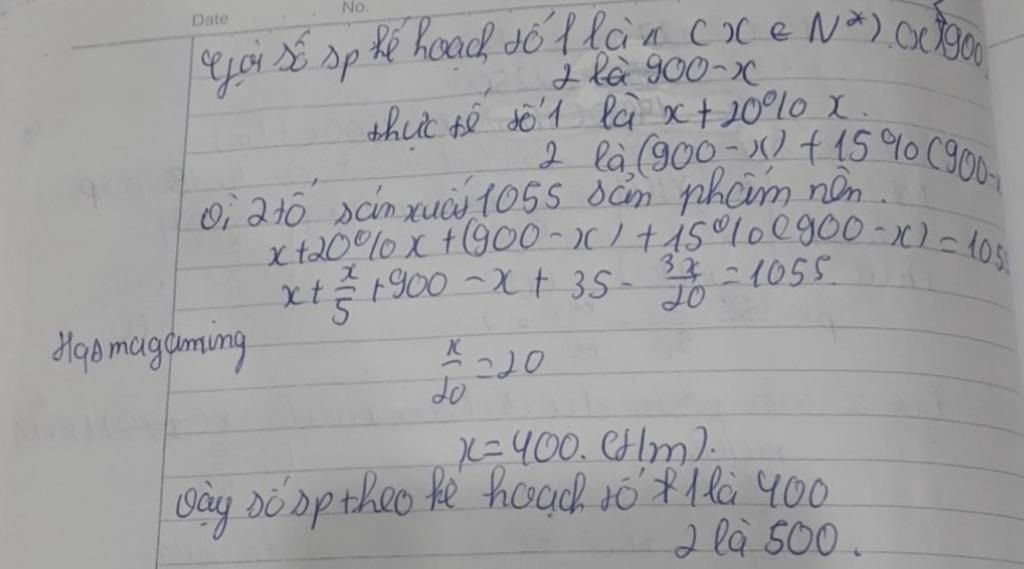 Date No.
Gọi số sp kế hoạch tổ 1 là x (x ∈ N*). (x<900
2 là 900-x
thực tế tổ 1 là x+20% x.
2 là (900-x)+15%(900-x
Vì 2 tổ sản xuất 1055 sản phẩm nên.
x+20%x+(900-x)+15%(900-x)=105
x+x/5+900-x+35-3x/20=1055.
Hqsmagaming
x/20=20
x=400. (t/m).
Vậy số sp theo kế hoạch tổ 1 là 400
2 là 500.